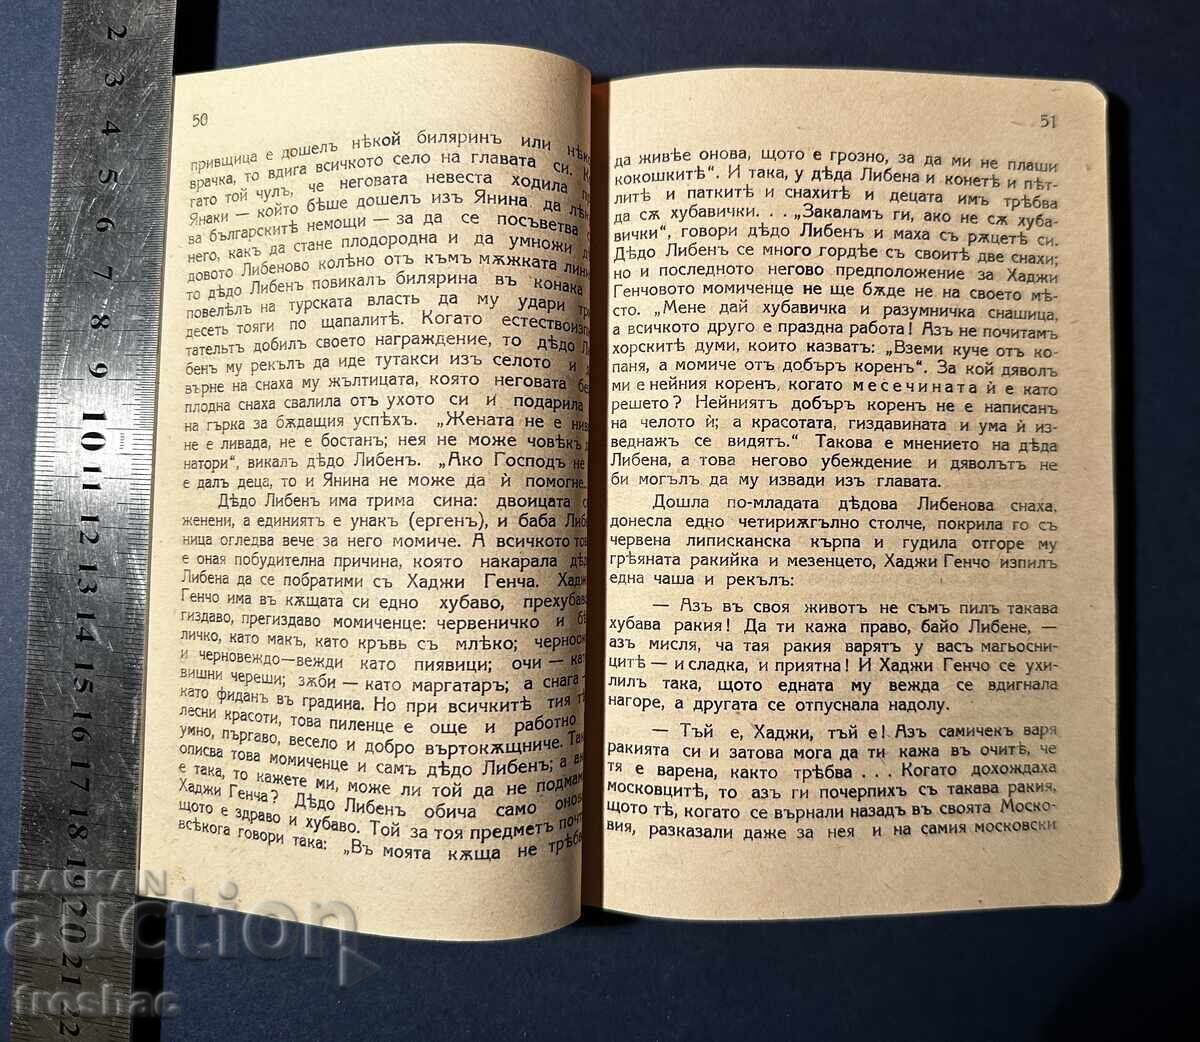 50
привщица е дошелъ нѣкой биляринъ или
врачка, то вдига всичкото село на главата си.
гато той чулъ, че неговата невеста ходила
Янаки — който бѣше дошелъ изъ Янина да
ва българскитѣ немощи — за да се посъветва
него, какъ да стане плодородна и да умножи
довото Либеново колѣно отъ къмъ мѫжката
то дѣдо Либенъ повикалъ билярина въ конака
повелѣлъ на турската власть да му удари
десеть тояги по щапалитѣ. Когато
тательтъ добилъ своето награждение, то дѣдо
бенъ му рекълъ да иде тутакси изъ селото и
върне на снаха му жълтицата, която неговата
плодна снаха свалила отъ ухото си и подарила
на гърка за бѫдащия успѣхъ. „Жената не е
не е ливада, не е бостанъ; нея не може човѣкъ
натори“, викалъ дѣдо Либенъ. „Ако Господъ не
е далъ деца, то и Янина не може да ѝ помогне..
Дѣдо Либенъ има трима сина: двоицата
женени, а единиятъ е унакъ (ергенъ), и баба
ница огледва вече за него момиче. А всичкото
е оная побудителна причина, която накарала
Либена да се побратими съ Хаджи Генча.
Генчо има въ кѫщата си едно хубаво, прехубаво
гиздаво, прегиздаво момиченце: червеничко и
личко, като макъ, като кръвь съ млѣко;
и черновеждо—вежди като пиявици; очи —
вишни череши; зѫби — като маргатаръ; а снага
като фиданъ въ градина. Но при всичкитѣ тия
лесни красоти, това пиленце е още и работно
умно, пъргаво, весело и добро въртокѫщниче.
описва това момиченце и самъ дѣдо Либенъ; а
е така, то кажете ми, може ли той да не
Хаджи Генча? Дѣдо Либенъ обича само
щото е здраво и хубаво. Той за тоя предметъ
всѣкога говори така: „Въ моята кѫща не
51
да живѣе онова, щото е грозно, за да ми не плаши
кокошкитѣ“. И така, у дѣда Либена и конетѣ и пѣт-
литѣ и паткитѣ и снахитѣ и децата имъ трѣбва
да сѫ хубавички. . . „Закаламъ ги, ако не сѫ хуба-
вички“, говори дѣдо Либенъ и маха съ рѫцетѣ си.
Дѣдо Либенъ се много гордѣе съ своитѣ две снахи;
но и последното негово предположение за Хаджи
Генчовото момиченце не ще бѫде не на своето мѣ-
сто. „Мене дай хубавичка и разумничка снашица,
а всичкото друго е праздна работа! Азъ не почитамъ
хорскитѣ думи, които казватъ: „Вземи куче отъ ко-
паня, а момиче отъ добъръ коренъ“. За кой дяволъ
ми е нейния коренъ, когато месечината ѝ е като
решето? Нейниятъ добъръ коренъ не е написанъ
на челото ѝ; а красотата, гиздавината и ума ѝ из-
веднажъ се видятъ.“ Такова е мнението на дѣда
Либена, а това негово убеждение и дяволътъ не
би могълъ да му извади изъ главата.
Дошла по-младата дѣдова Либенова снаха,
донесла едно четирижгълно столче, покрила го съ
червена липисканска кърпа и гудила отгоре му
грѣяната ракийка и мезенцето, Хаджи Генчо изпилъ
една чаша и рекълъ:
— Азъ въ своя животъ не съмъ пилъ такава
хубава ракия! Да ти кажа право, байо Либене, —
азъ мисля, ча тая ракия варятъ у васъ магьосни-
цитѣ — и сладка, и приятна! И Хаджи Генчо се ухи-
лилъ така, щото едната му вежда се вдигнала
нагоре, а другата се отпуснала надолу.
— Тъй е, Хаджи, тъй е! Азъ самичекъ варя
ракията си и затова мога да ти кажа въ очитѣ, че
тя е варена, както трѣбва . . . Когато дохождаха
московцитѣ, то азъ ги почерпихъ съ такава ракия,
щото тѣ, когато се върнали назадъ въ своята Моско-
вия, разказали даже за нея и на самия московски
2
3
4
5
6
7
8
9
10
11
12
13
14
15
16
17
18
19
20
21
22
БАЛКАН
auction
froshac